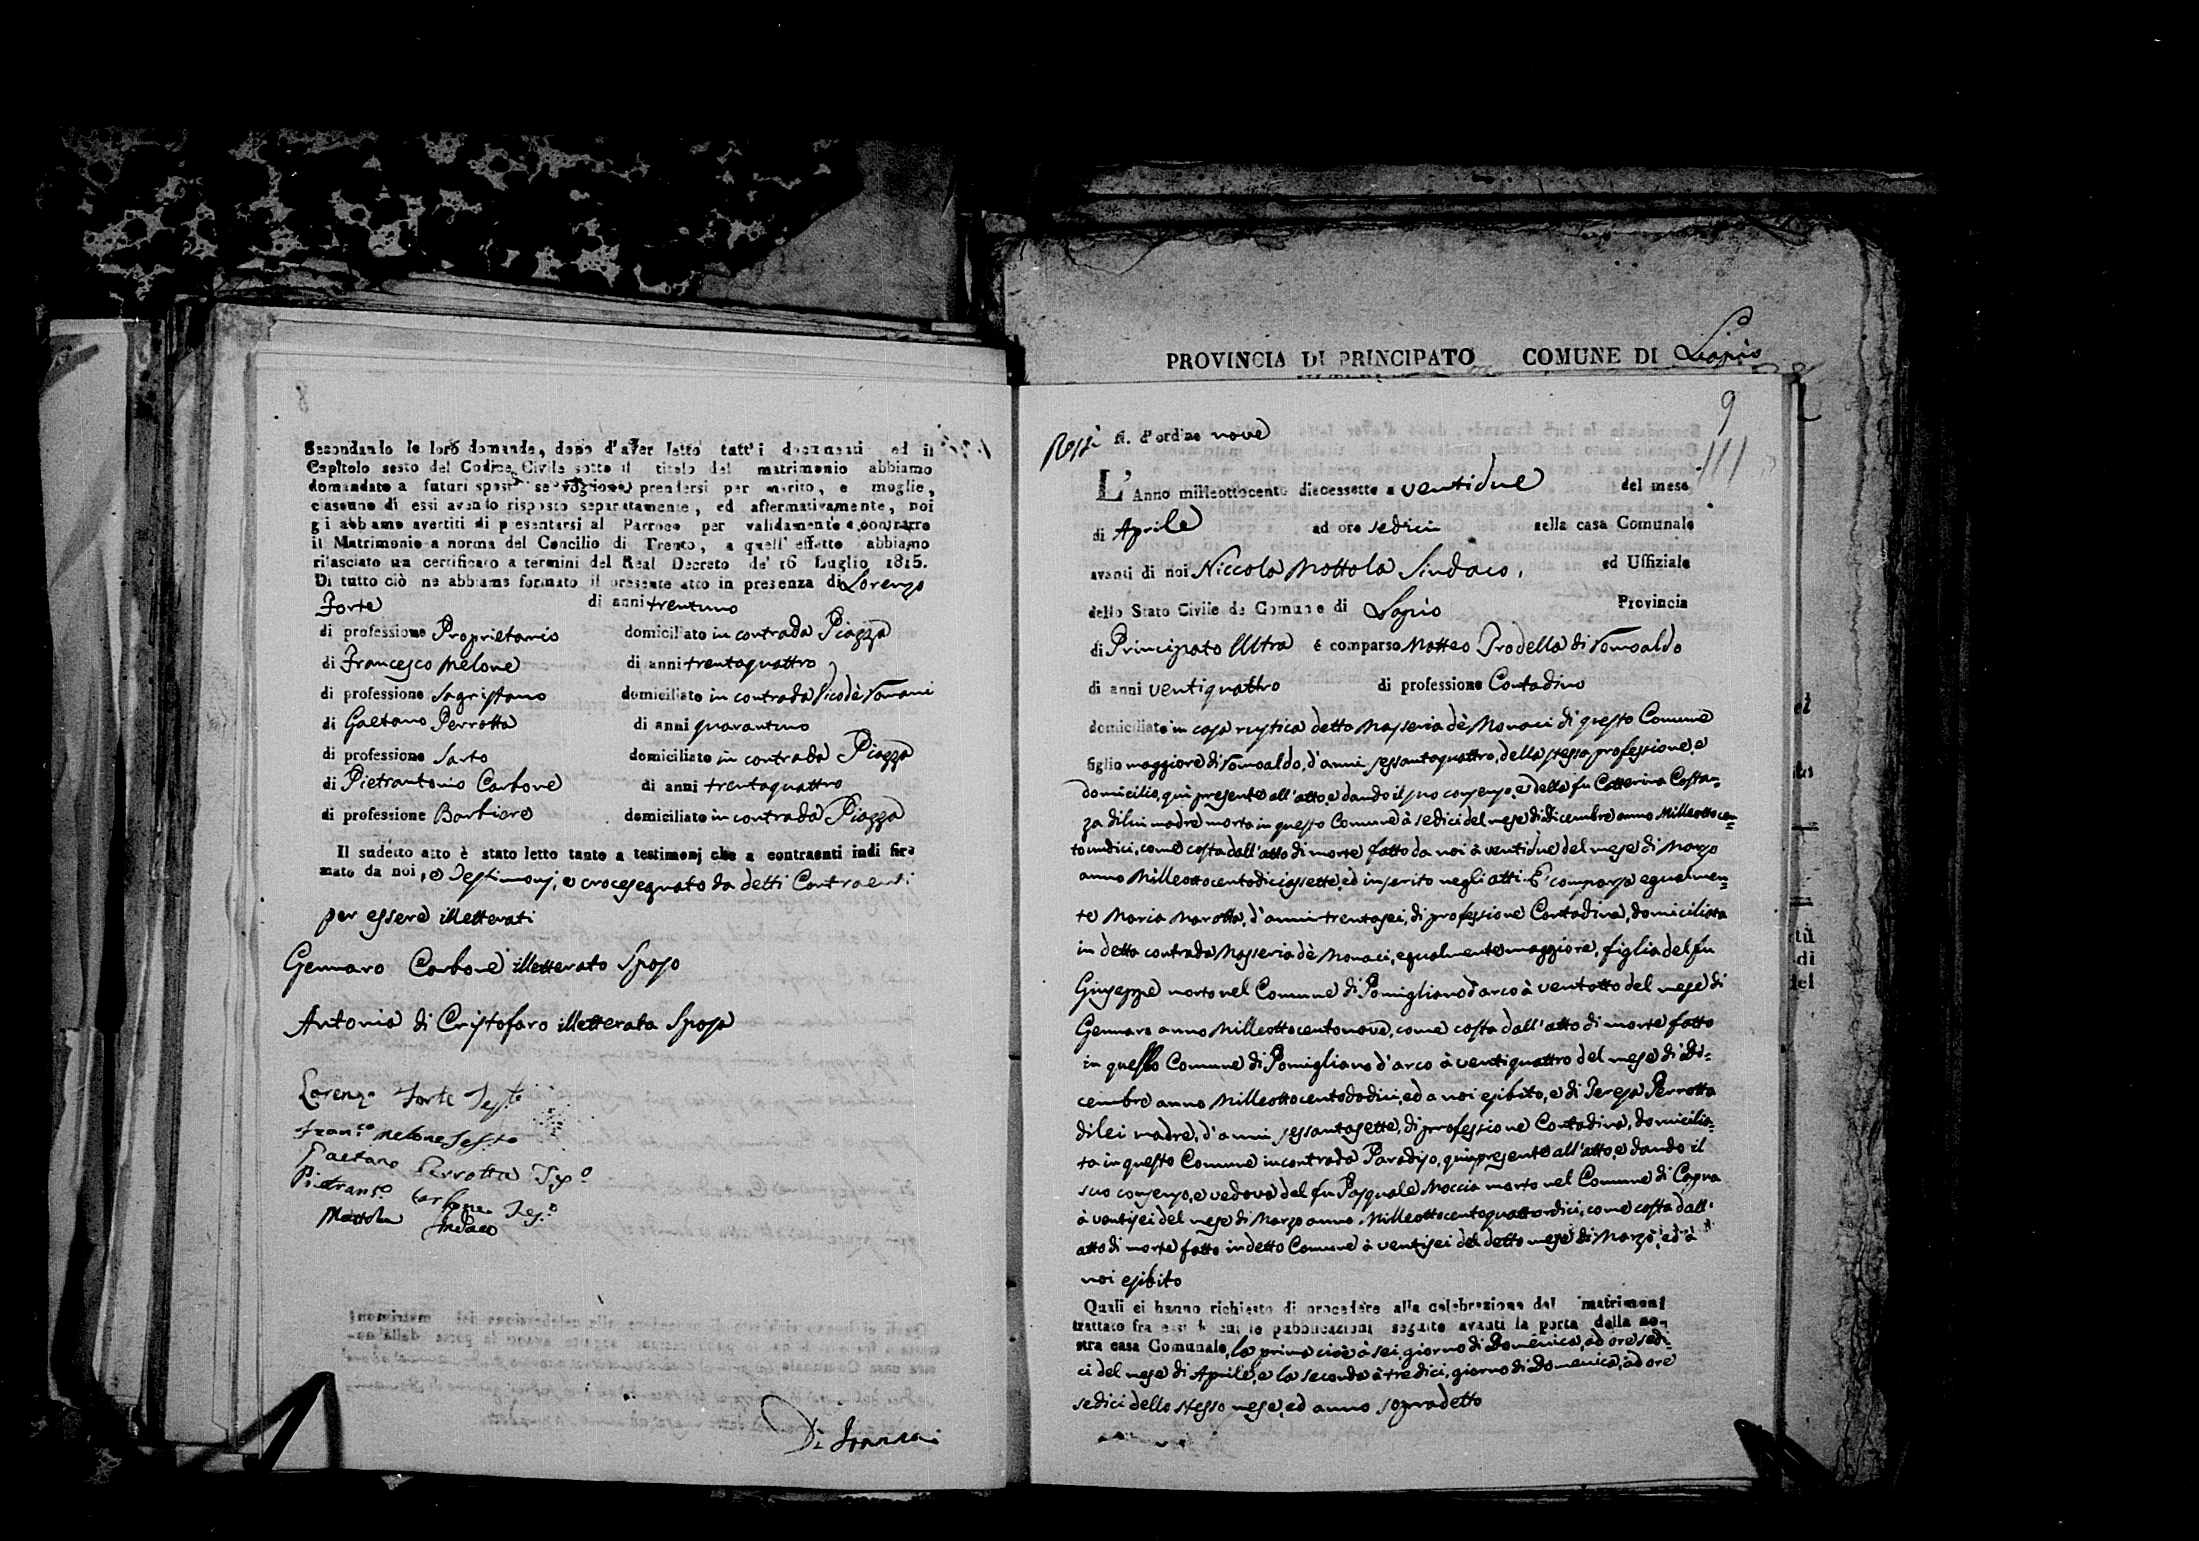 8
Secondando le loro domande, dopo d'aver letto tutt'i documenti ed il
Capitolo sesto del Codice Civile sotto il titolo del matrimonio abbiamo
domandato a futuri sposi se vogliono prendersi per marito, e moglie,
ciascuno di essi avendo risposto separatamente, ed affermativamente, noi
gli abbiamo avertiti di presentarsi al Parroco per validamente contrarre
il Matrimonio a norma del Concilio di Trento, a quell' effetto abbiamo
rilasciato un certificato a termini del Real Decreto de' 16 Luglio 1815.
Di tutto ciò ne abbiamo formato il presente atto in presenza di Lorenzo
Forte di anni trentuno
di professione Proprietario domiciliato in contrada Piazza
di Francesco Melone di anni trentaquattro
di professione Sagristano domiciliato in contrada Vico dè
di Gaetano Perrotta di anni quarantuno
di professione Sarto domiciliato in contrada Piazza
di Pietrantonio Carbone di anni trentaquattro
di professione Barbiere domiciliato in contrada Piazza
Il sudetto atto è stato letto tanto a testimonj che a contraenti indi fir
mato da noi, e Testimonj, e crocesegnato da detti Contraenti
per essere illetterati
Gennaro Carbone illetterato Sposo
Antonia di Cristofaro illetterata Sposa
Lorenzo Forte Test.
Fran.co Melone Test.
Gaetano Perrotta Tes.o
Pietrant.o Carbone Tes.o
Mottola Sindaco
PROVINCIA DI PRINCIPATO COMUNE DI Lapio
9
N. d'ordine nove
L'Anno milleottocento diecessette a ventidue del mese
di Aprile ad ore sedici nella casa Comunale
avanti di noi Niccola Mottola Sindaco, ed Uffiziale
dello Stato Civile de Comune di Lapio Provincia
di Principato Ultra è comparso Matteo Prodella di Romoaldo
di anni ventiquattro di professione Contadino
domiciliato in casa rustica detta Masseria dè Monaci di questo Comune
figlio maggiore di Romoaldo, d'anni sessantaquattro, della stessa professione, e
domicilio, quì presente all'atto, e dando il suo consenso, e della fu Catterina Costan=
za di lui madre morta in questo Comune à sedici del mese di Dicembre anno Milleottocen=
toundici, come costa dall'atto di morte fatto da noi à ventidue del mese di Marzo
anno Milleottocentodiciassette, ed inserito negli atti. È comparsa egualmen=
te Maria Marotta, d'anni trentasei, di professione Contadina, domiciliata
in detta contrada Masseria dè Monaci, egualmente maggiore, figlia del fu
Giuseppe morto nel Comune di Pomigliano d'arco à ventotto del mese di
Gennaro anno Milleottocentonove, come costa dall'atto di morte fatto
in questo Comune di Pomigliano d'arco à ventiquattro del mese di Di=
cembre anno Milleottocentododici, ed a noi esibito, e di Teresa Perrotta
di lei madre, d'anni sessantasette, di professione Contadina, domicilia=
ta in questo Comune in contrada Paradiso, qui presente all'atto, e dando il
suo consenso, e vedova del fu Pasquale Moccia morto nel Comune di Capua
à ventisei del mese di Marzo anno Milleottocentoquattordici, come costa dall'
atto di morte fatto in detto Comune à ventisei del detto mese di Marzo, ed à
noi esibito
Quali ci hanno richiesto di procedere alla celebrazione del matrimoni
trattato fra essi di cui le pubblicazioni seguite avanti la porta della no-
stra casa Comunale, la prima cioè à sei giorno di Domenica, ad ore sedi=
ci del mese di Aprile, e la seconda à tredici, giorno di Domenica, ad ore
sedici dello stesso mese, ed anno sopradetto